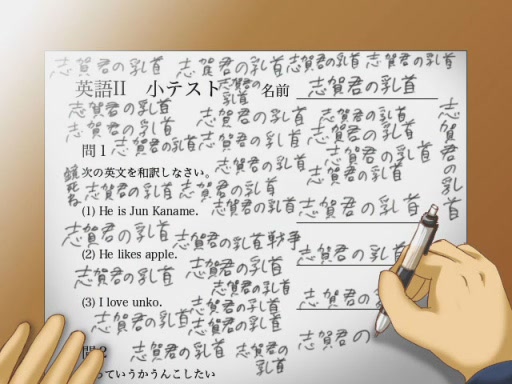 志賀君の乳首 志賀君の乳首 志賀君の乳首 志賀君の乳首
英語II 小テスト 志賀君の乳首 名前 志賀君の乳首
志賀君の乳首 志賀君の乳首 志賀君の乳首
志賀君の乳首
問1 志賀君の乳首 志賀君の乳首 志賀君の乳首
志賀君の乳首 志賀君の乳首
次の英文を和訳しなさい。
志賀君の乳首 志賀君の乳首 志賀君の乳首
死ね
(1) He is Jun Kaname. 志賀君の乳首 志賀君の乳首
志賀君の乳首 志賀君の乳首戦争
(2) He likes apple. 志賀君の乳首
志賀君の乳首 志賀君の乳首
志賀君の乳首
(3) I love unko. 志賀君の乳首 志賀君の乳
志賀君の乳首 志賀君の乳首
志賀君の
問2 志賀君の乳首 志賀君の乳首
っていうかうんこしたい